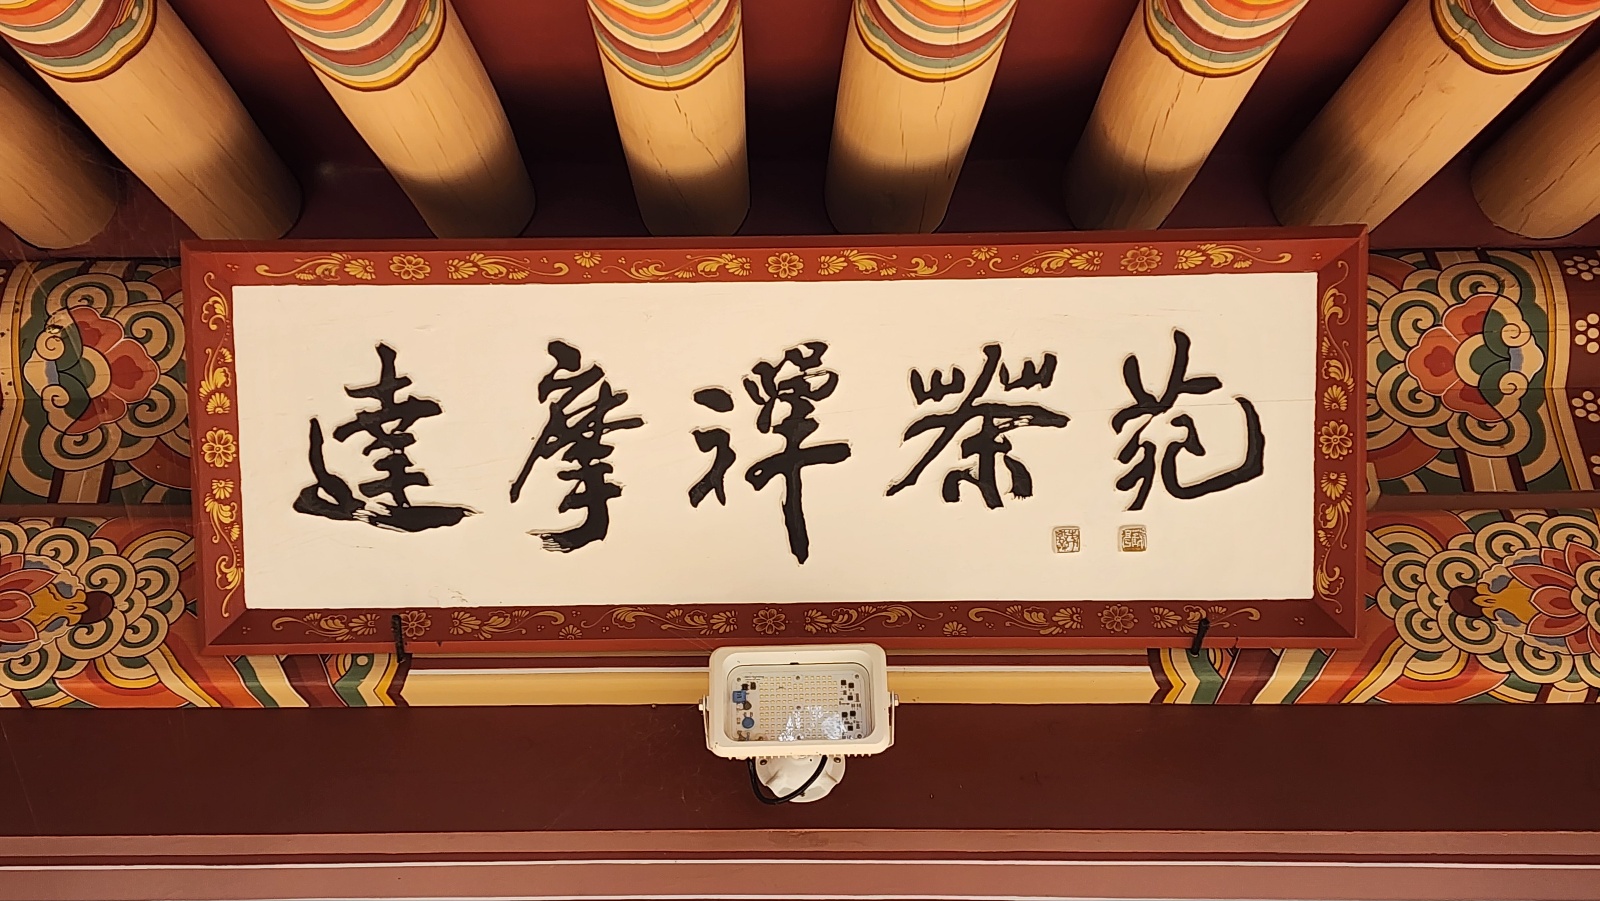 達摩禪茶苑